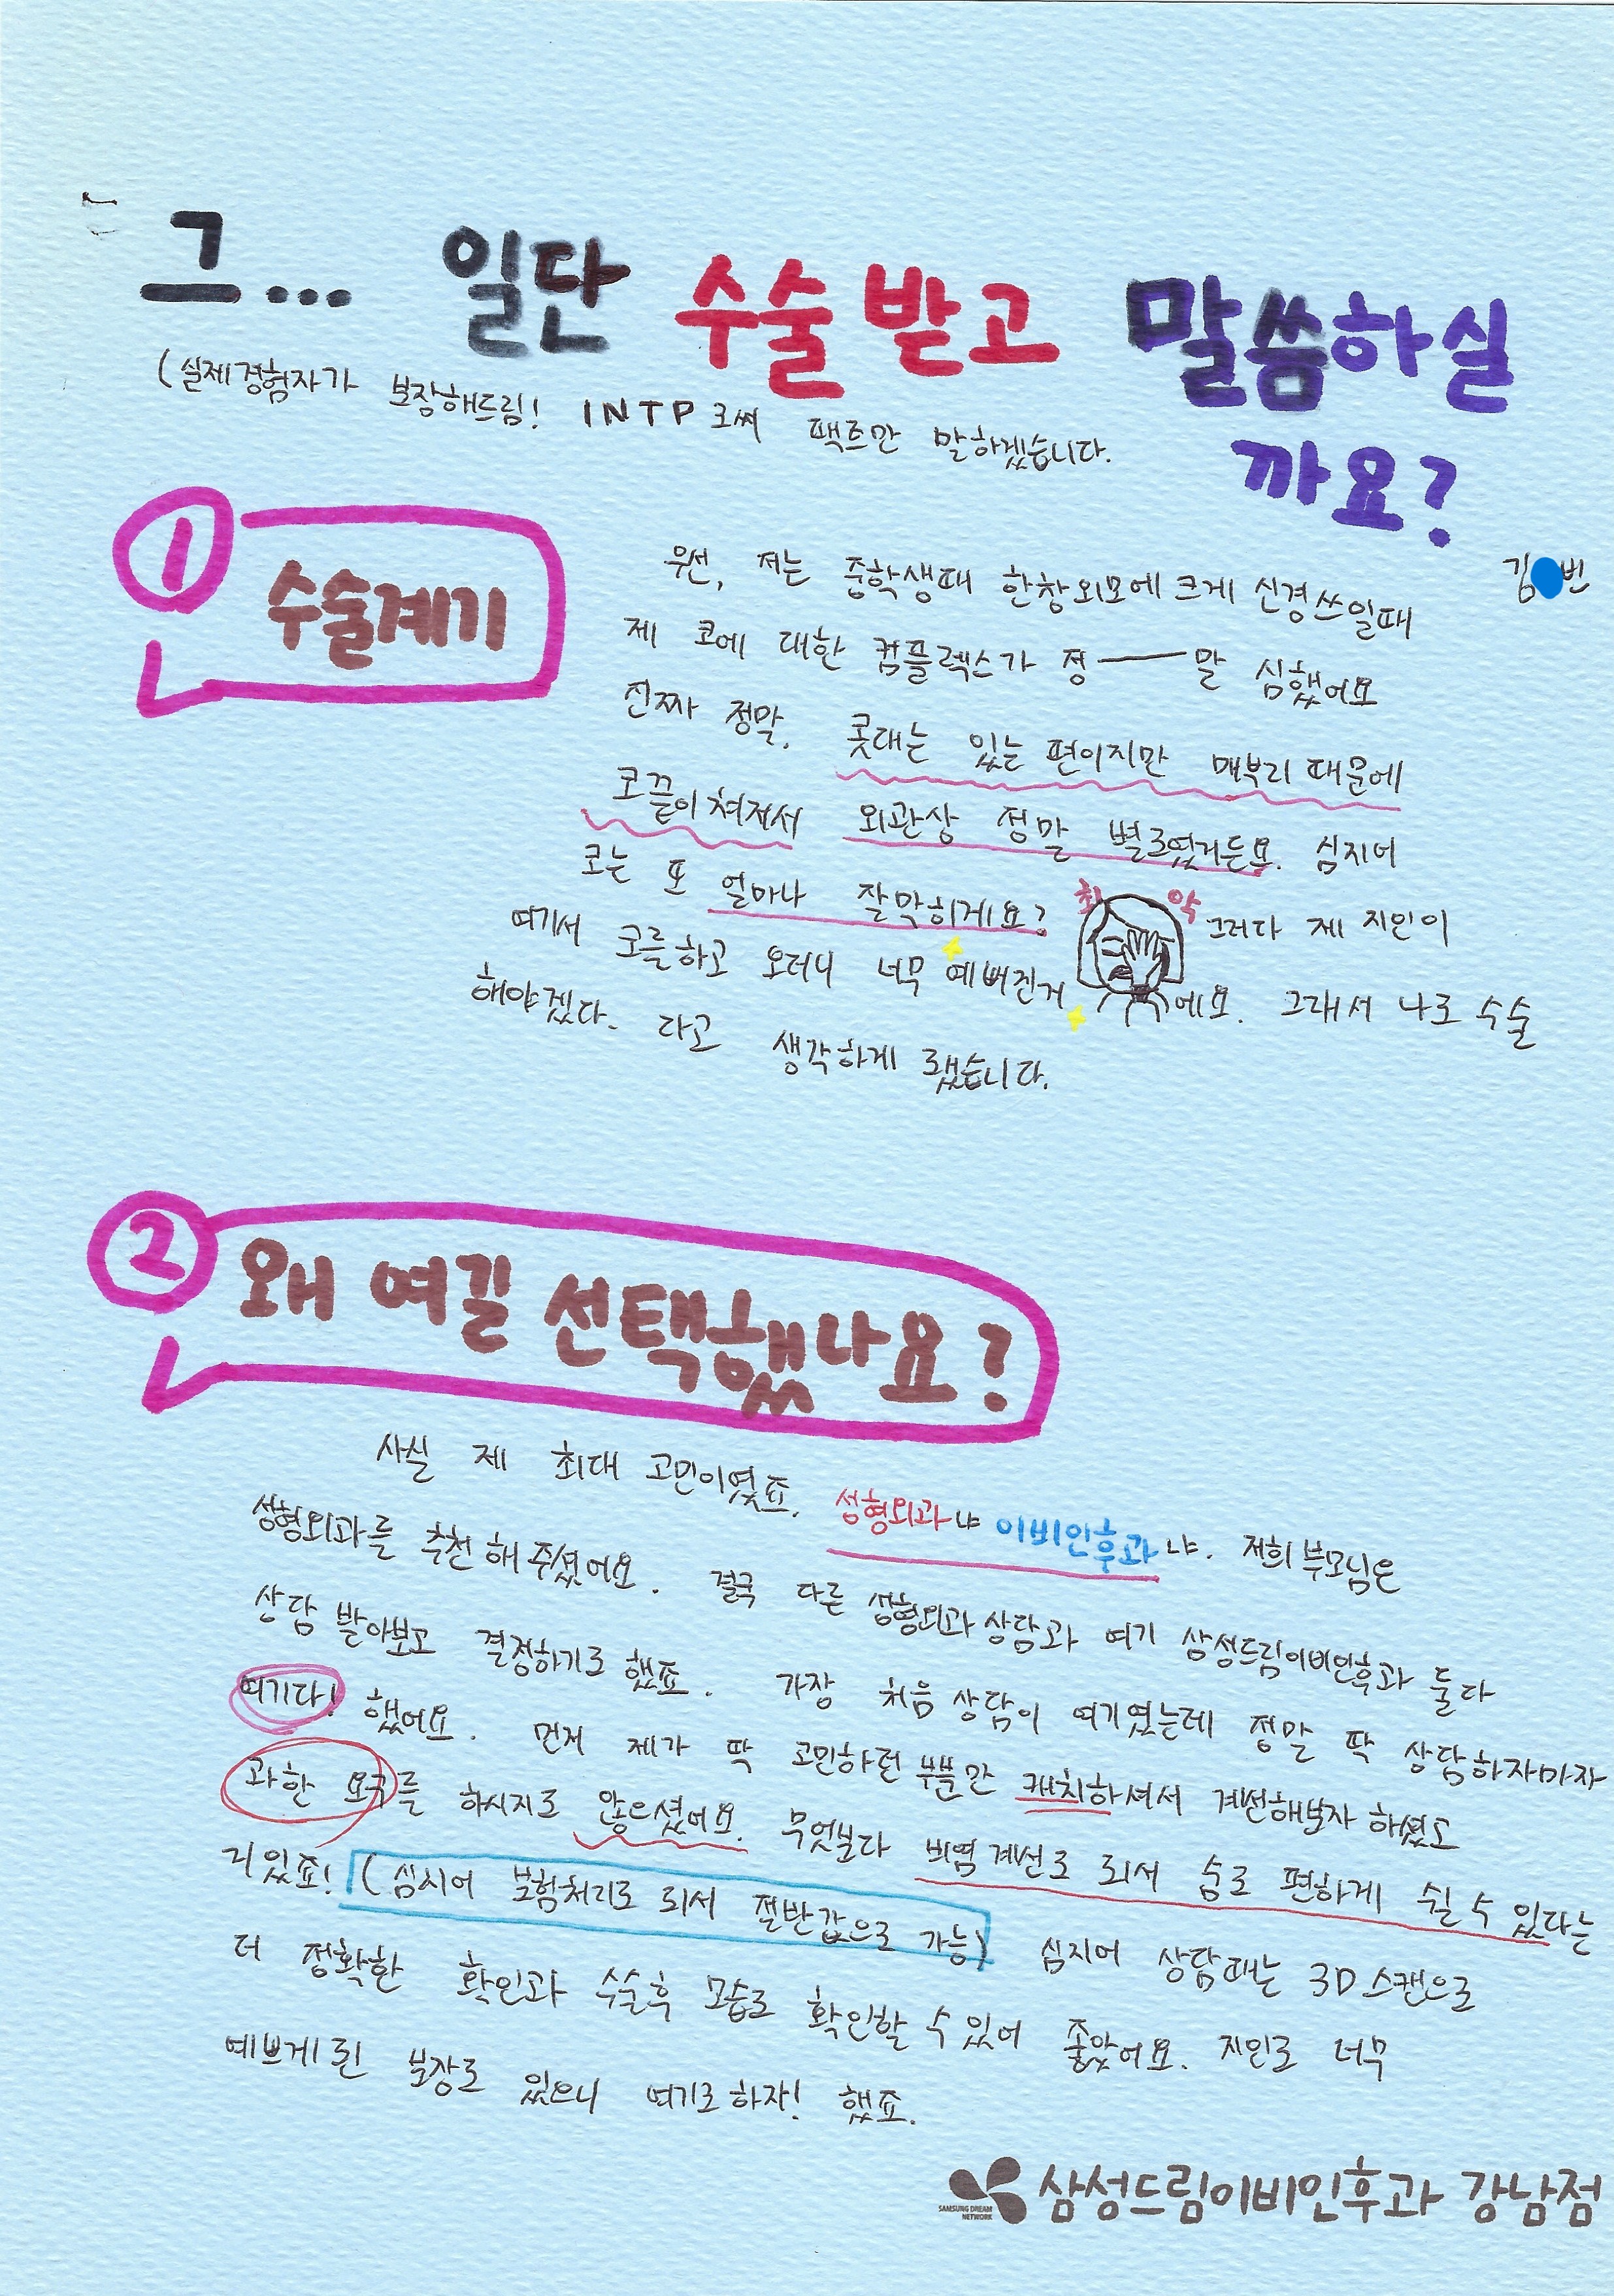 그... 일단 수술 받고 말씀하실
까요?
(실제경험자가 보장해드림! INTP로써 팩트만 말하겠습니다.
김 빈
① 수술계기
우선, 저는 중학생때 한창 외모에 크게 신경쓰일때
제 코에 대한 컴플렉스가 정──말 심했어요
진짜 정말. 콧대는 있는 편이지만 매부리 때문에
코끝이 쳐져서 외관상 정말 별로였거든요. 심지어
코는 또 얼마나 잘막히게요? 최악 그러다 제 지인이
여기서 코를하고 오더니 너무 예뻐진거에요. 그래서 나도 수술
해야겠다. 라고 생각하게 됐습니다.
② 왜 여길 선택했나요?
사실 제 최대 고민이였죠. 성형외과냐 이비인후과냐. 저희 부모님은
성형외과를 추천 해 주셨어요. 결국 다른 성형외과 상담과 여기 삼성드림이비인후과 둘다
상담 받아보고 결정하기로 했죠. 가장 처음 상담이 여기였는데 정말 딱 상담하자마자
여기다! 했어요. 먼저 제가 딱 고민하던 부분만 캐치하셔서 개선해보자 하셨고
과한 요구를 하시지도 않으셨어요. 무엇보다 비염 개선도 되서 숨도 편하게 쉴 수 있다는
거 있죠! (심지어 보험처리도 되서 절반값으로 가능) 심지어 상담때는 3D 스캔으로
더 정확한 확인과 수술후 모습도 확인할 수 있어 좋았어요. 지인도 너무
예쁘게 된 보장도 있으니 여기로 하자! 했죠.
SAMSUNG DREAM
NETWORK
삼성드림이비인후과 강남점